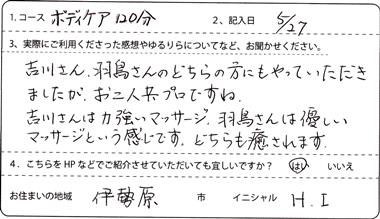 1. コース ボディケア 120分 2、記入日 5/27
3、実際にご利用くださった感想やゆるりらについてなど、お聞かせください。
吉川さん、羽鳥さんのどちらの方にもやっていただき
ましたが、お二人共プロですね。
吉川さんは力強いマッサージ。羽鳥さんは優しい
マッサージという感じです。どちらも癒されます。
4．こちらをHPなどでご紹介させていただいても宜しいですか？ はい いいえ
お住まいの地域 伊勢原 市 イニシャル H.I